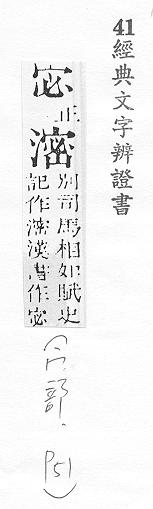 41經典文字辨證書
宓正
滵別司馬相如賦史
記作滵漢書作宓
(宀部. P51)